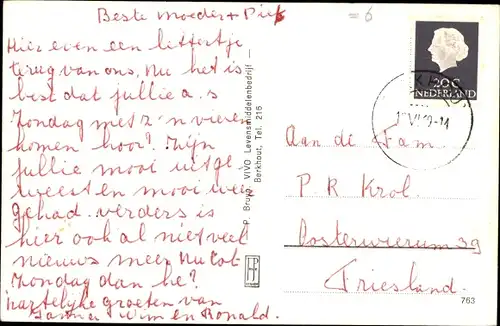 Beste moeder + Piet
= 6
Hier even een lettertje
terug van ons, nu het is
best dat jullie a.s
Zondag met z'n vieren
komen hoor? Zijn
jullie mooi uitge
weest en mooi weer
gehad. verders is
hier ook al niet veel
nieuws meer. Nu tot
Zondag dan hè?
hartelijke groeten van
Wim en Ronald.
P. Bruin VIVO Levensmiddelenbedrijf -
Berkhout, Tel. 216
763
20C
NEDERLAND
Aan de Fam.
P R Krol.
Oosterwierum 39
Friesland.